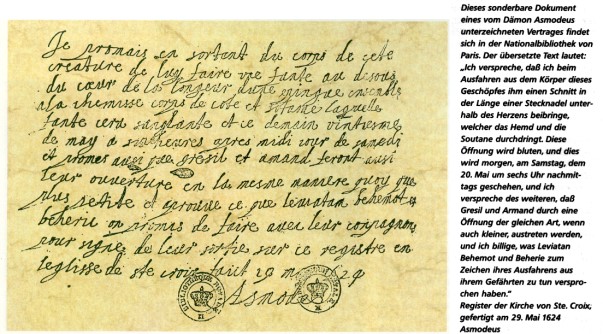 Je promais en sortent du corps de cete
creature de luy faire vne fante au desous
du cœur de la longeur dune pingue ensanble
a la chemisse corps de cote et laquelle
fante cera sanglante et ce demain vintiesme
de may a heures apres midi iour de samedi
et promes ausi que gresil et amand feront ausi
leur ouverture en la mesme maniere quoy que
plus petite et aprouve ce que leviatam behemot
beherie on promes de faire avec leur compagnon
pour signe de leur sortie sur ce registre en
leglisse de ste croix faict
Asmodee
Dieses sonderbare Dokument
eines vom Dämon Asmodeus
unterzeichneten Vertrages findet
sich in der Nationalbibliothek von
Paris. Der übersetzte Text lautet:
„Ich verspreche, daß ich beim
Ausfahren aus dem Körper dieses
Geschöpfes ihm einen Schnitt in
der Länge einer Stecknadel unter-
halb des Herzens beibringe,
welcher das Hemd und die
Soutane durchdringt. Diese
Öffnung wird bluten, und dies
wird morgen, am Samstag, dem
20. Mai um sechs Uhr nachmit-
tags geschehen, und ich
verspreche des weiteren, daß
Gresil und Armand durch eine
Öffnung der gleichen Art, wenn
auch kleiner, austreten werden,
und ich billige, was Leviatan
Behemot und Beherie zum
Zeichen ihres Ausfahrens aus
ihrem Gefährten zu tun verspro-
chen haben.“
Register der Kirche von Ste. Croix,
gefertigt am 29. Mai 1624
Asmodeus